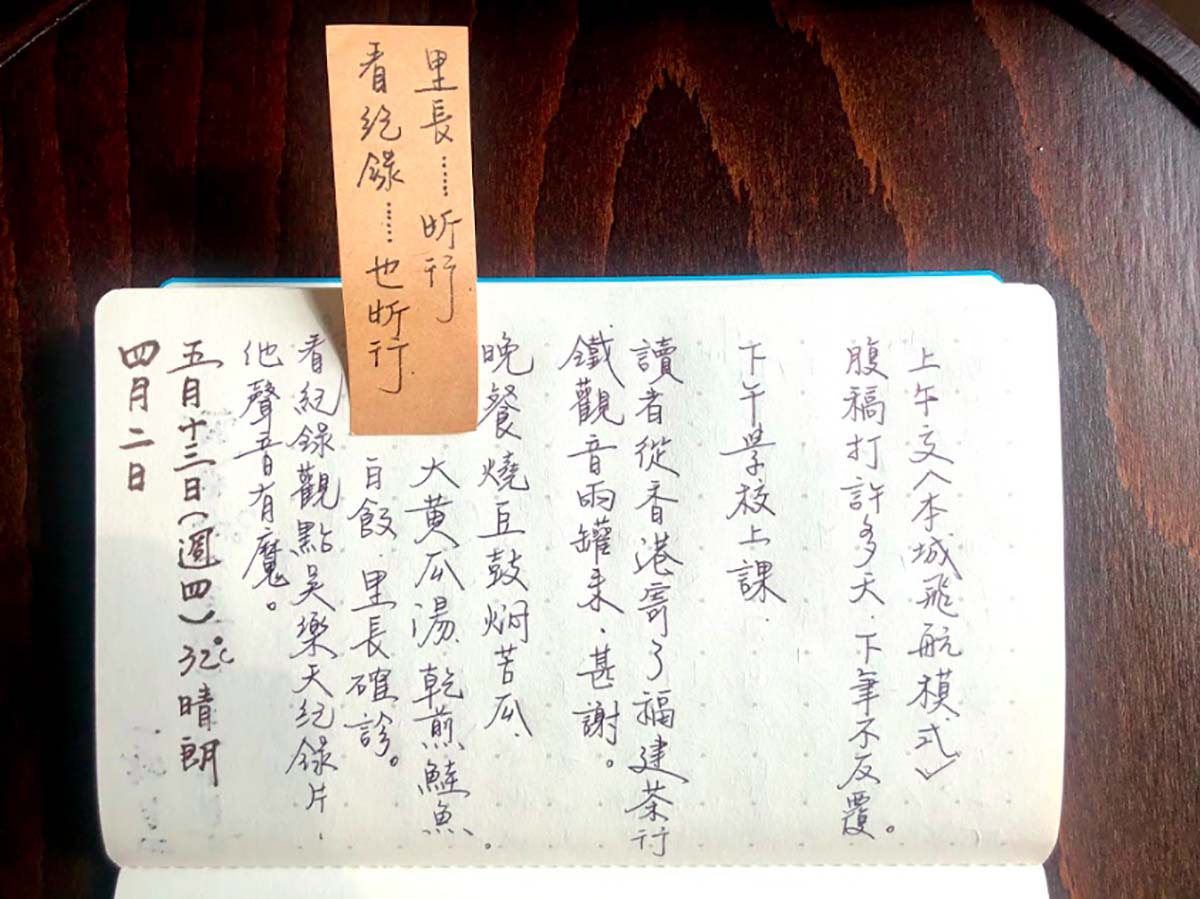 里長……昕行
看紀錄……也昕行
上午交《本城飛航模式》
腹稿打許多天.下筆不反覆。
下午學校上課.
讀者從香港寄了福建茶行
鐵觀音兩罐來.甚謝。
晚餐燒豆鼓焖苦瓜.
大黃瓜湯.乾煎鮭魚.
白飯.里長確診。
看紀錄觀點吳樂天紀錄片.
他聲音有魔。
五月十三日(週四)32℃晴朗
四月二日